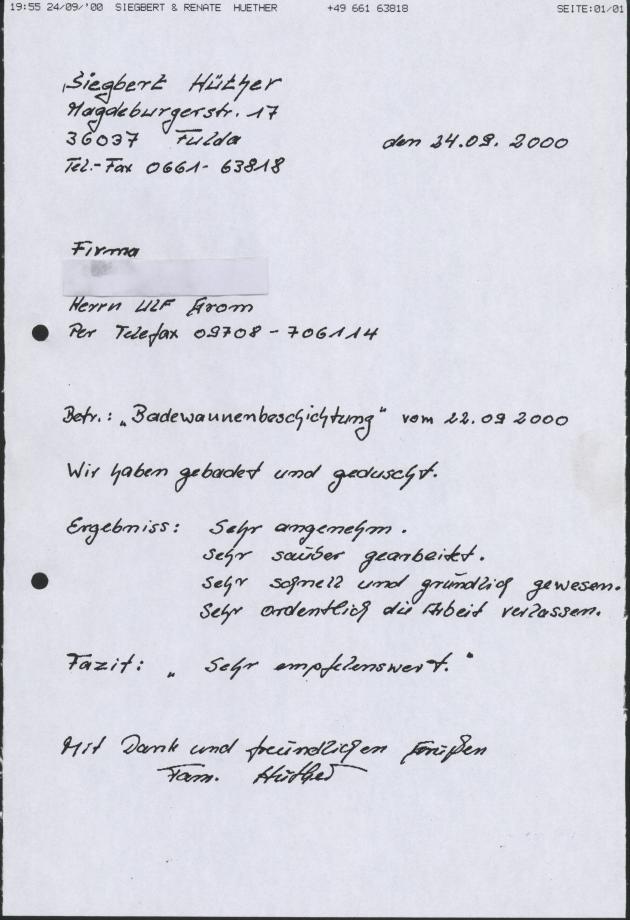 19:55 24/09/'00 SIEGBERT & RENATE HUETHER +49 661 63818 SEITE:01/01
Siegbert Hüther
Magdeburgerstr. 17
36037 Fulda den 24.09. 2000
Tel.-Fax 0661-63818
Firma
Herrn Ulf Grom
Per Telefax 09708-706114
Betr.: „Badewannenbeschichtung" vom 22.09 2000
Wir haben gebadet und geduscht.
Ergebniss: Sehr angenehm.
Sehr sauber gearbeitet.
Sehr schnell und gründlich gewesen.
Sehr ordentlich die Arbeit verlassen.
Fazit: „Sehr empfelenswert."
Mit Dank und freundlichen Grüßen
Fam. Hüther